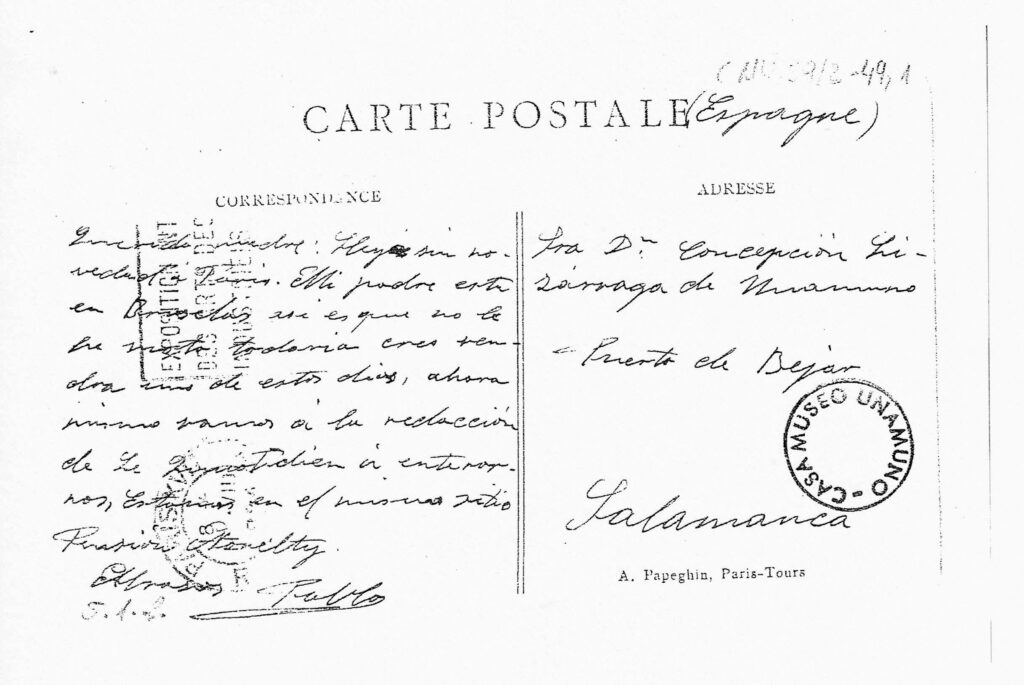 CNU 59/2-49,1
CARTE POSTALE (Espagne)
CORRESPONDANCE
Querida madre: Llegé sin no-
vedad á Paris. Mi padre está
en Bruselas asi es que no le
he visto todavia cres ven-
dra uno de estos dias, ahora
mismo vamos á la redacción
de Le Quotidien á enterar-
nos, Estamos en el mismo sitio
Pension Novelty.
Abrazos Pablo
5.1.2.
EXPOSITION INT
DES ARTS DEC
ADRESSE
Sra Dª Concepción Li-
zárraga de Unamuno
Puerto de Bejar
CASA MUSEO UNAMUNO
Salamanca
A. Papeghin, Paris-Tours